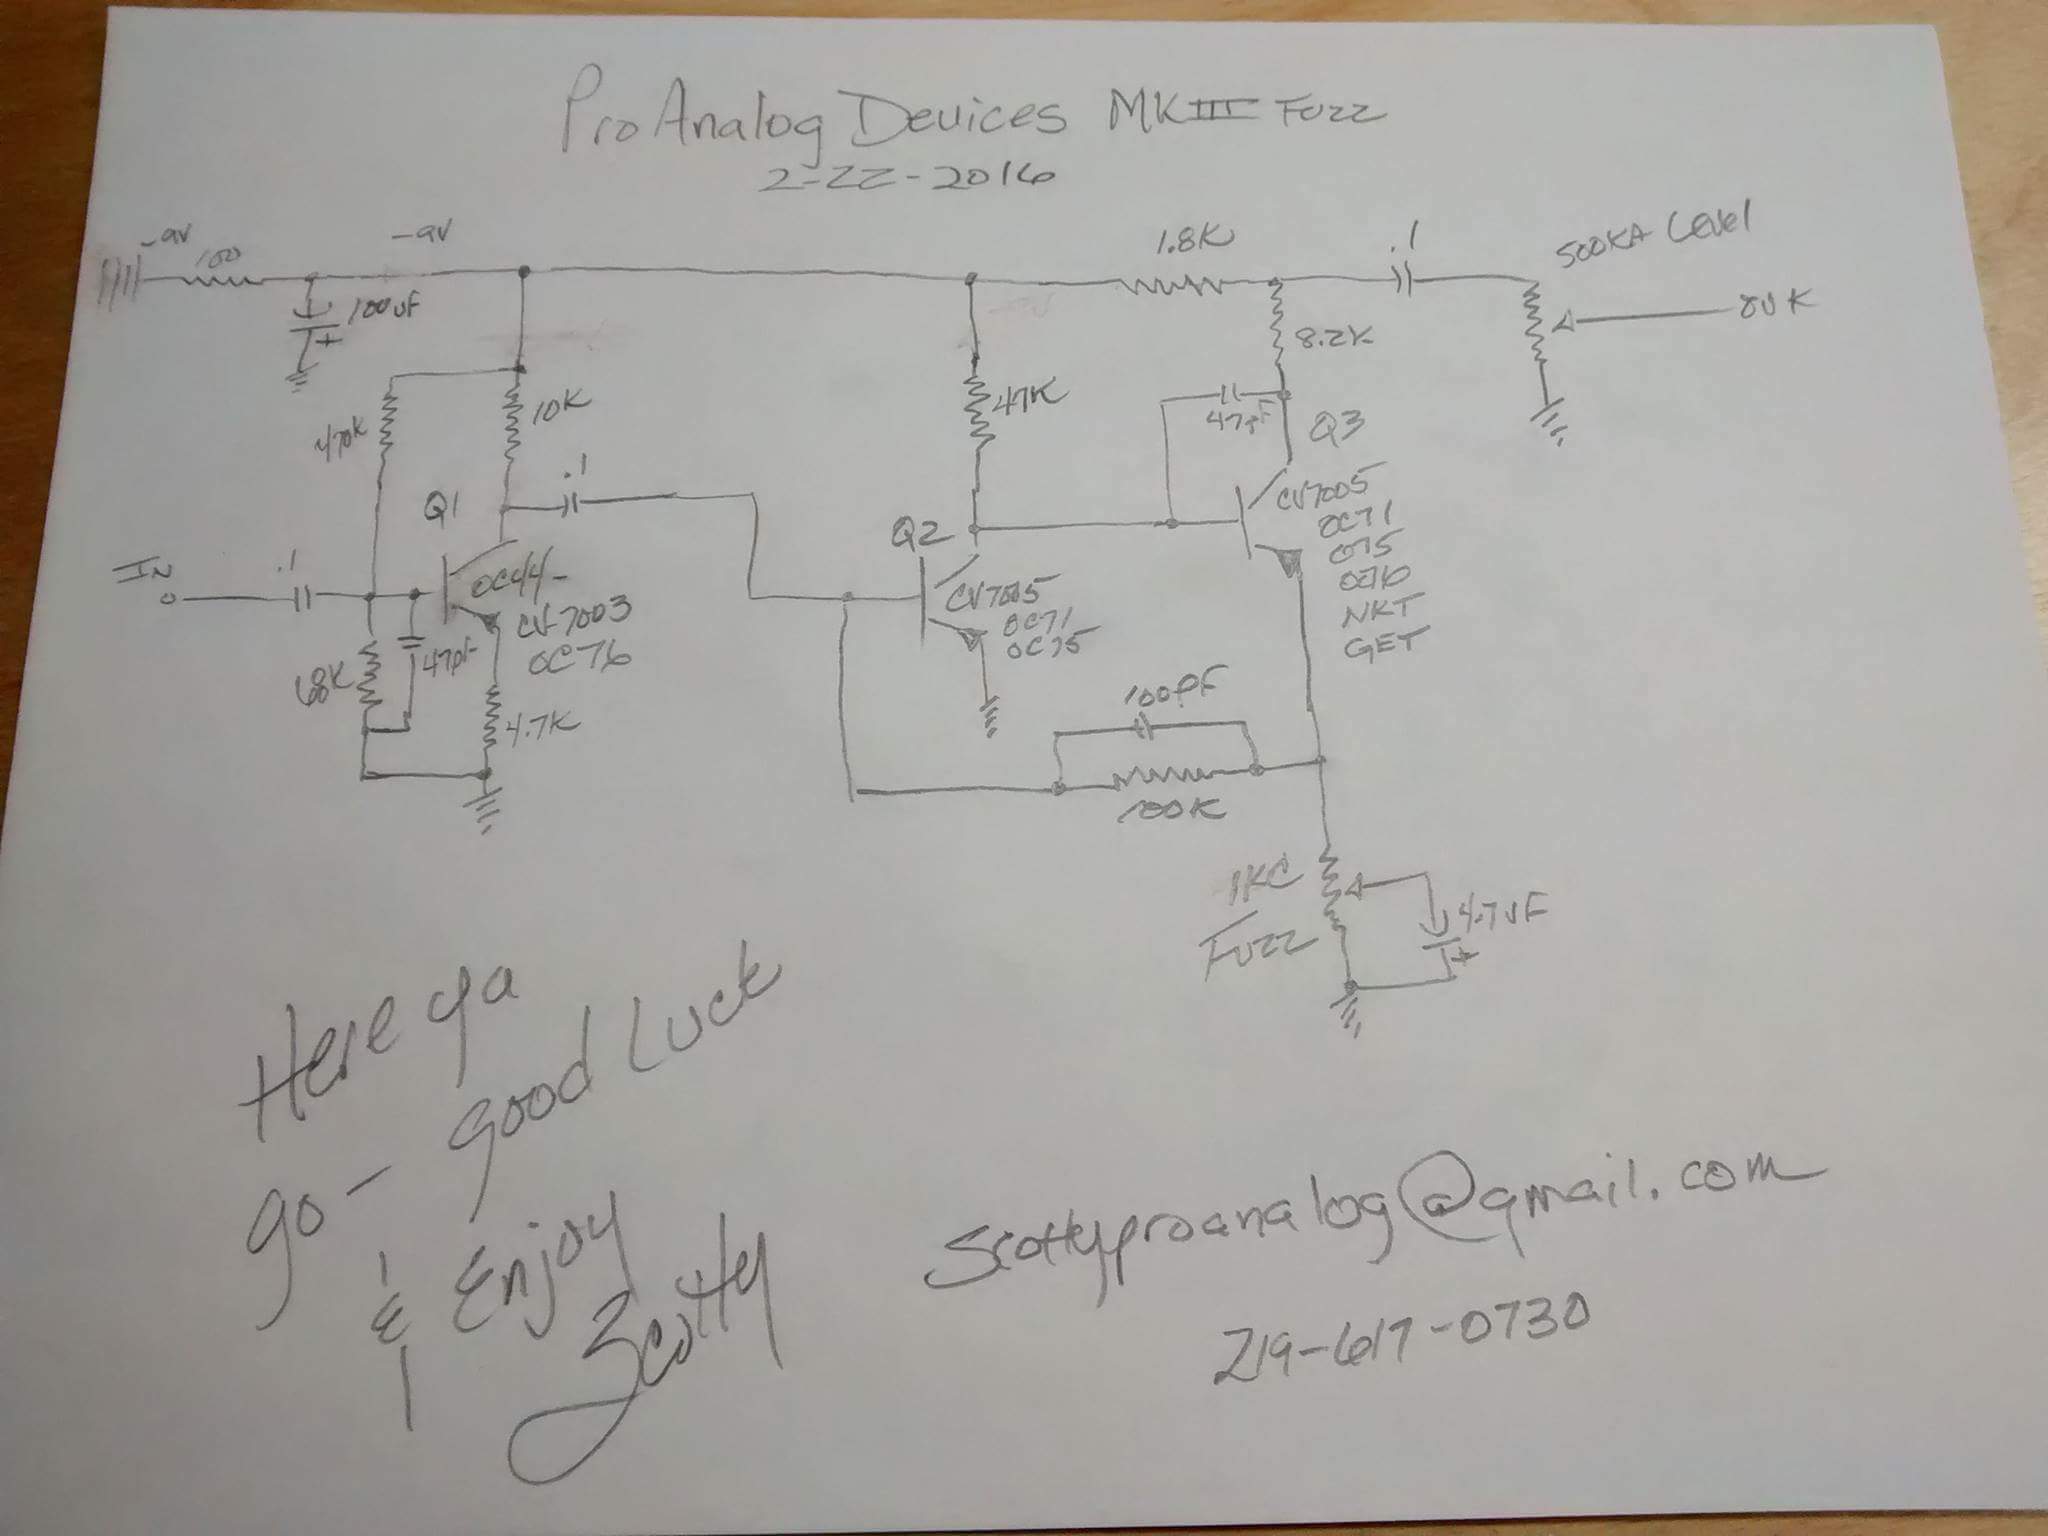 ProAnalog Devices MKIII Fuzz
2-22-2016
-9V
100
-9V
100uF
1.8K
.1
500KA Level
8.2K
47K
47pF
Q3
470K
10K
.1
Q1
Q2
CV7005
OC71
OC76
NKT
GET
In
.1
OC44-
CV7003
OC76
CV7005
OC71
OC75
68K
47pF
4.7K
100pF
100K
1KC
Fuzz
4.7uF
Here ya
go - good Luck
& Enjoy
Scotty
Scottyproanalog@gmail.com
219-617-0730